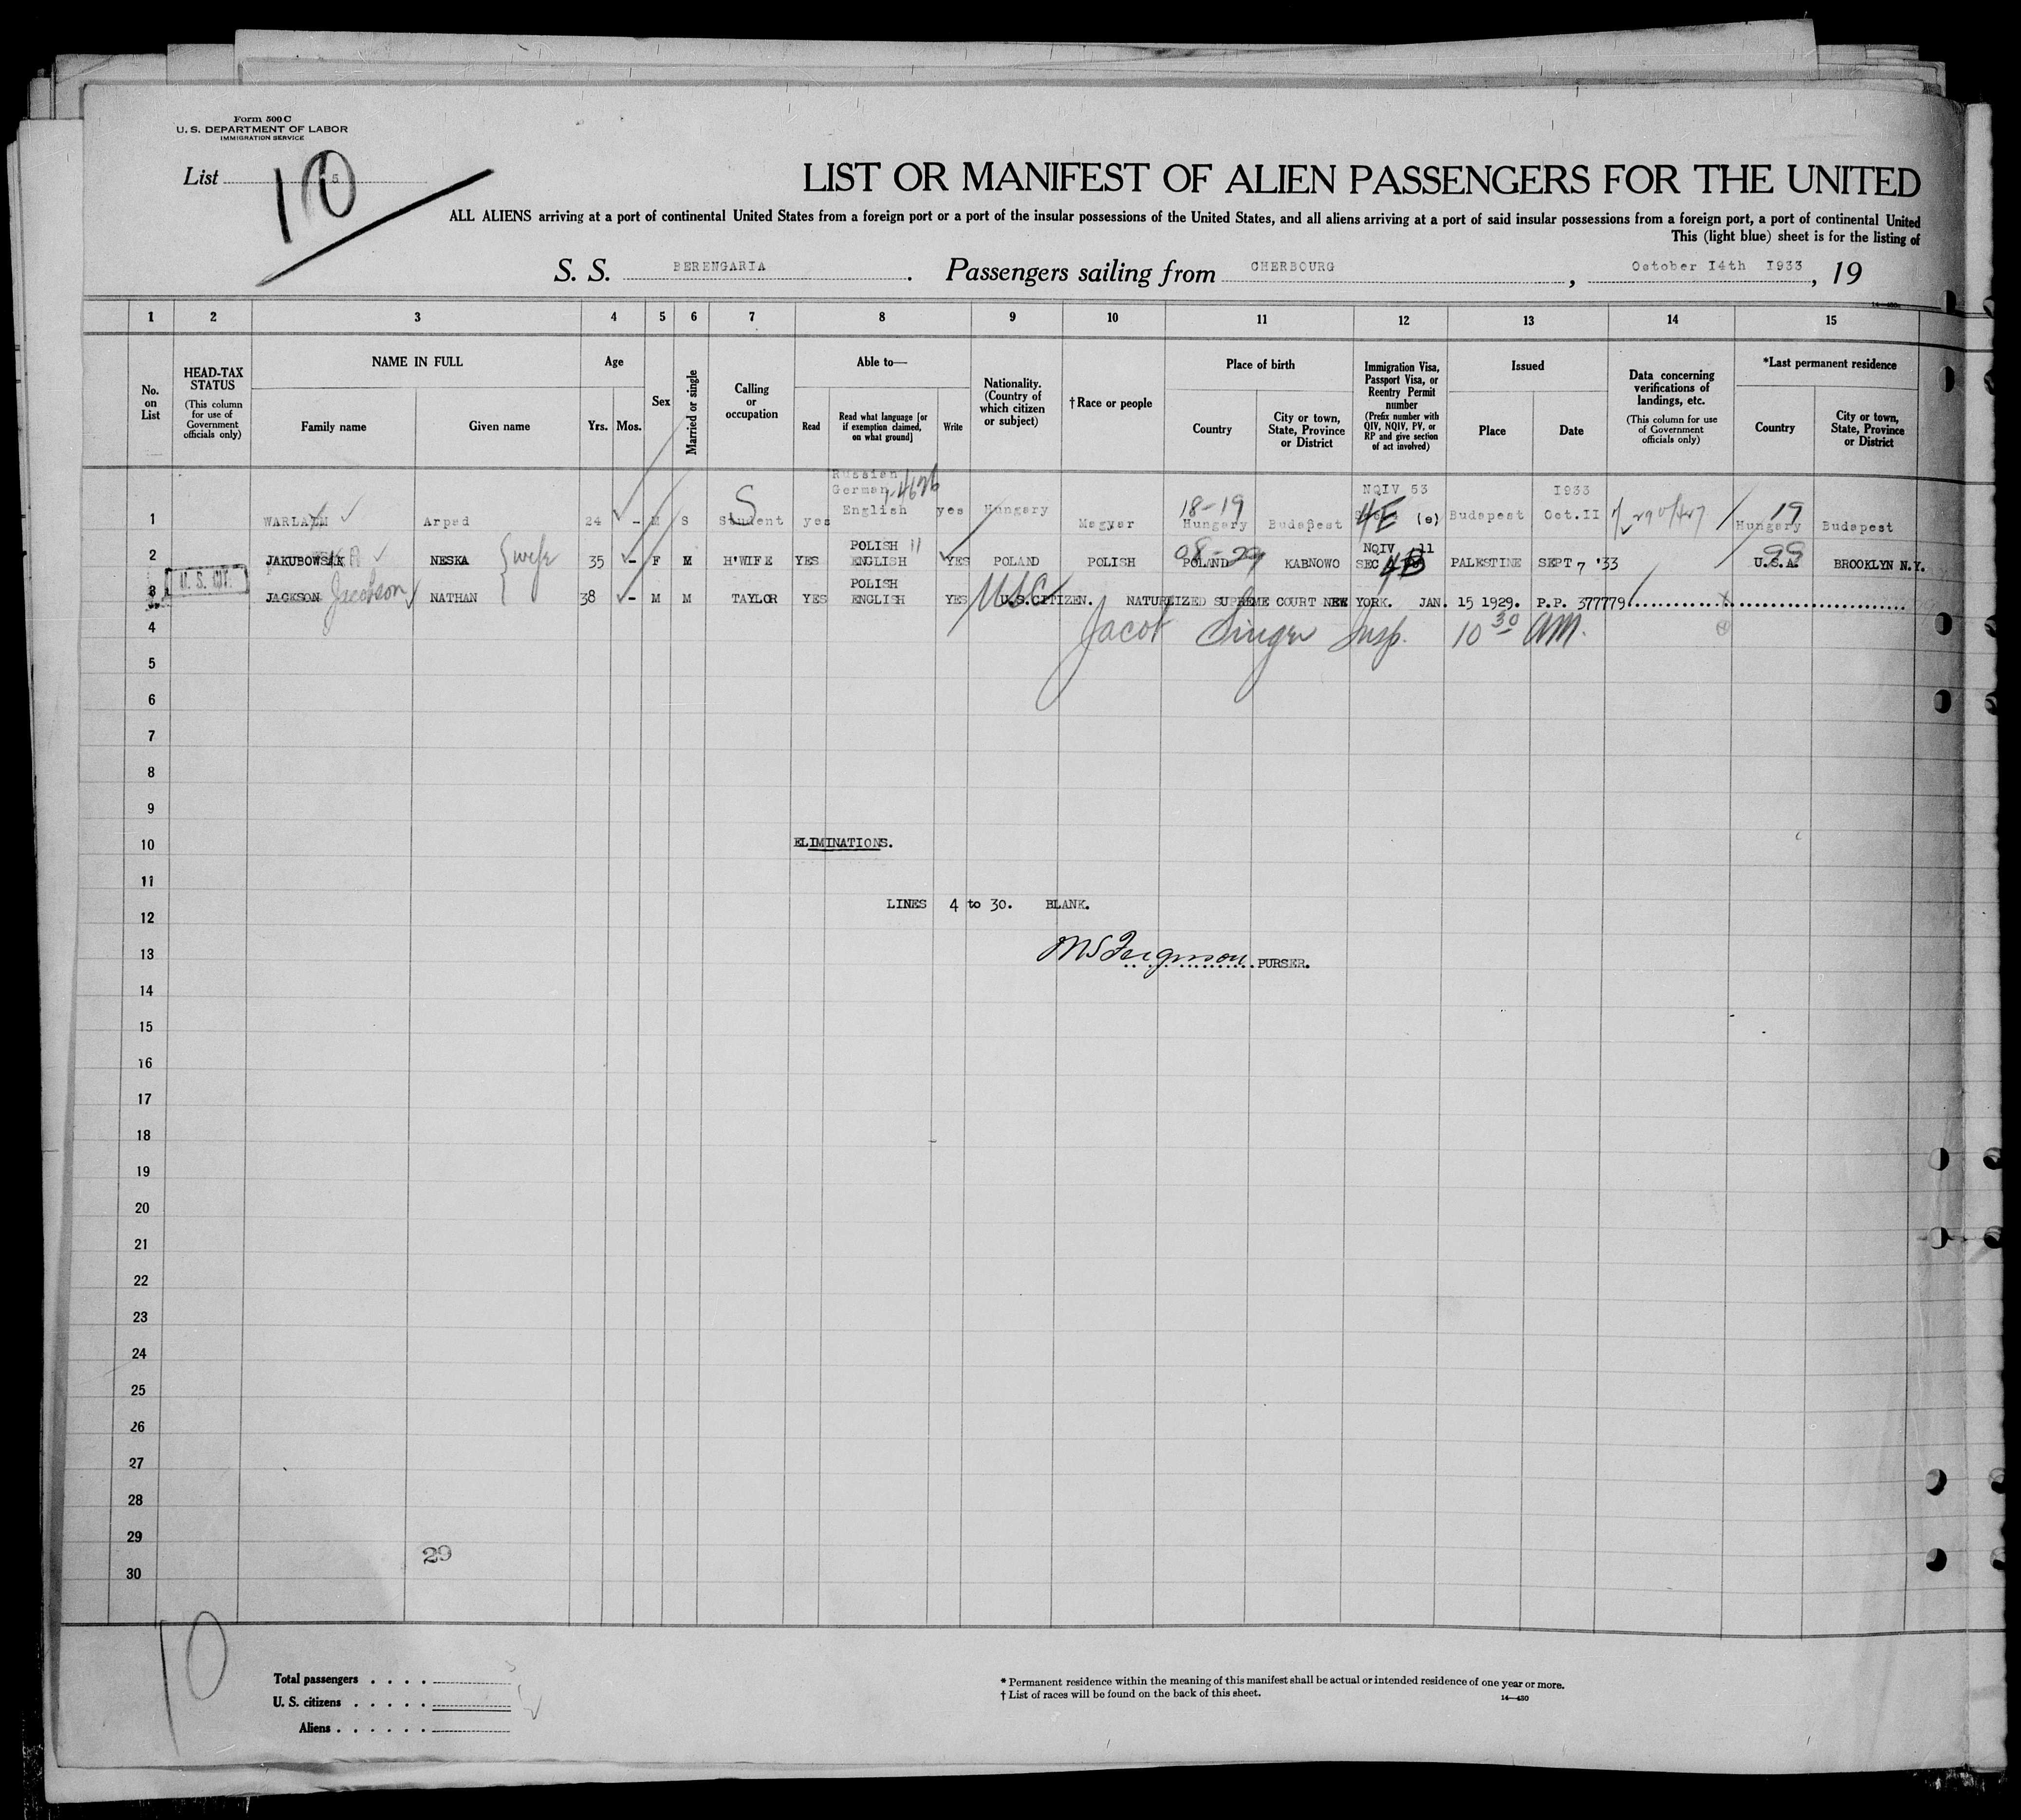 Form 500 C
U. S. DEPARTMENT OF LABOR
IMMIGRATION SERVICE
List 5
10
LIST OR MANIFEST OF ALIEN PASSENGERS FOR THE UNITED
ALL ALIENS arriving at a port of continental United States from a foreign port or a port of the insular possessions of the United States, and all aliens arriving at a port of said insular possessions from a foreign port, a port of continental United
This (light blue) sheet is for the listing of
S. S. BERENGARIA. Passengers sailing from CHERBOURG, October I4th I933, 19
14—430
1 2 3 4 5 6 7 8 9 10 11 12 13 14 15
No. on List
HEAD-TAX STATUS (This column for use of Government officials only)
NAME IN FULL Family name Given name
Age Yrs. Mos.
Sex
Married or single
Calling or occupation
Able to— Read Read what language [or if exemption claimed, on what ground] Write
Nationality. (Country of which citizen or subject)
† Race or people
Place of birth Country City or town, State, Province or District
Immigration Visa, Passport Visa, or Reentry Permit number (Prefix number with QIV, NQIV, PV, or RP and give section of act involved)
Issued Place Date
Data concerning verifications of landings, etc. (This column for use of Government officials only)
*Last permanent residence Country City or town, State, Province or District
Russian
German NQIV 53 I933
1 Arpad 24 - M S Student S yes English yes Hungary Magyar 18-19 Hungary Budapest 4E (e) Budapest Oct.II 19 Hungary Budapest
POLISH 11 NQIV 11
2 JAKUBOWSKA NESKA wife 35 - F M H'WIFE YES ENGLISH YES POLAND POLISH 08-29 POLAND KABNOWO SEC 4B PALESTINE SEPT 7 '33 99 U.S.A. BROOKLYN N.Y.
U. S. CIT.
POLISH
3 JACKSON Jacobson NATHAN 38 - M M TAYLOR YES ENGLISH YES USC U.S.CITIZEN. NATURLIZED SUPREME COURT NEW YORK. JAN. 15 1929. P.P. 377779
4 Jacob Singer Insp. 10 30 AM.
5
6
7
8
9
10 ELIMINATIONS.
11
LINES 4 to 30. BLANK.
12
13 M S Ferguson PURSER.
14
15
16
17
18
19
20
21
22
23
24
25
26
27
28
29
29
30
10
Total passengers
U. S. citizens
Aliens
* Permanent residence within the meaning of this manifest shall be actual or intended residence of one year or more.
† List of races will be found on the back of this sheet.
14—430